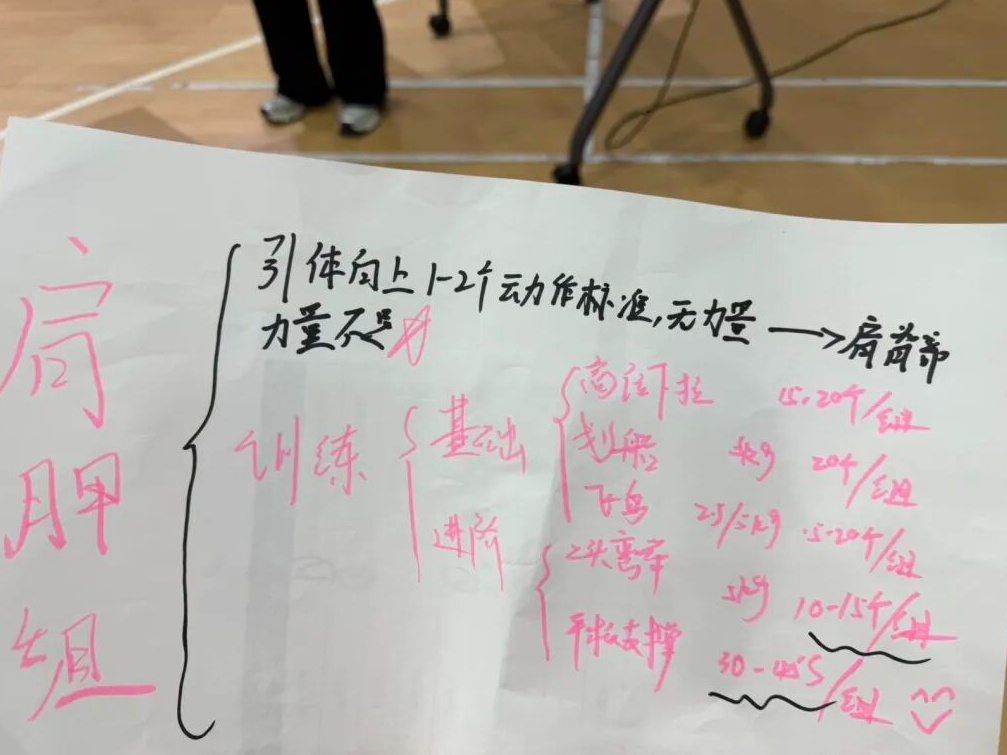 肩胛组
引体向上1-2个动作标准,无力量→肩背部
力量不足
训练
基础
高位下拉 15-20个/组
划船 5kg 20个/组
飞鸟 2.5/5kg 15-20个/组
进阶
二头弯举 5kg 10-15个/组
平板支撑 30-45S/组